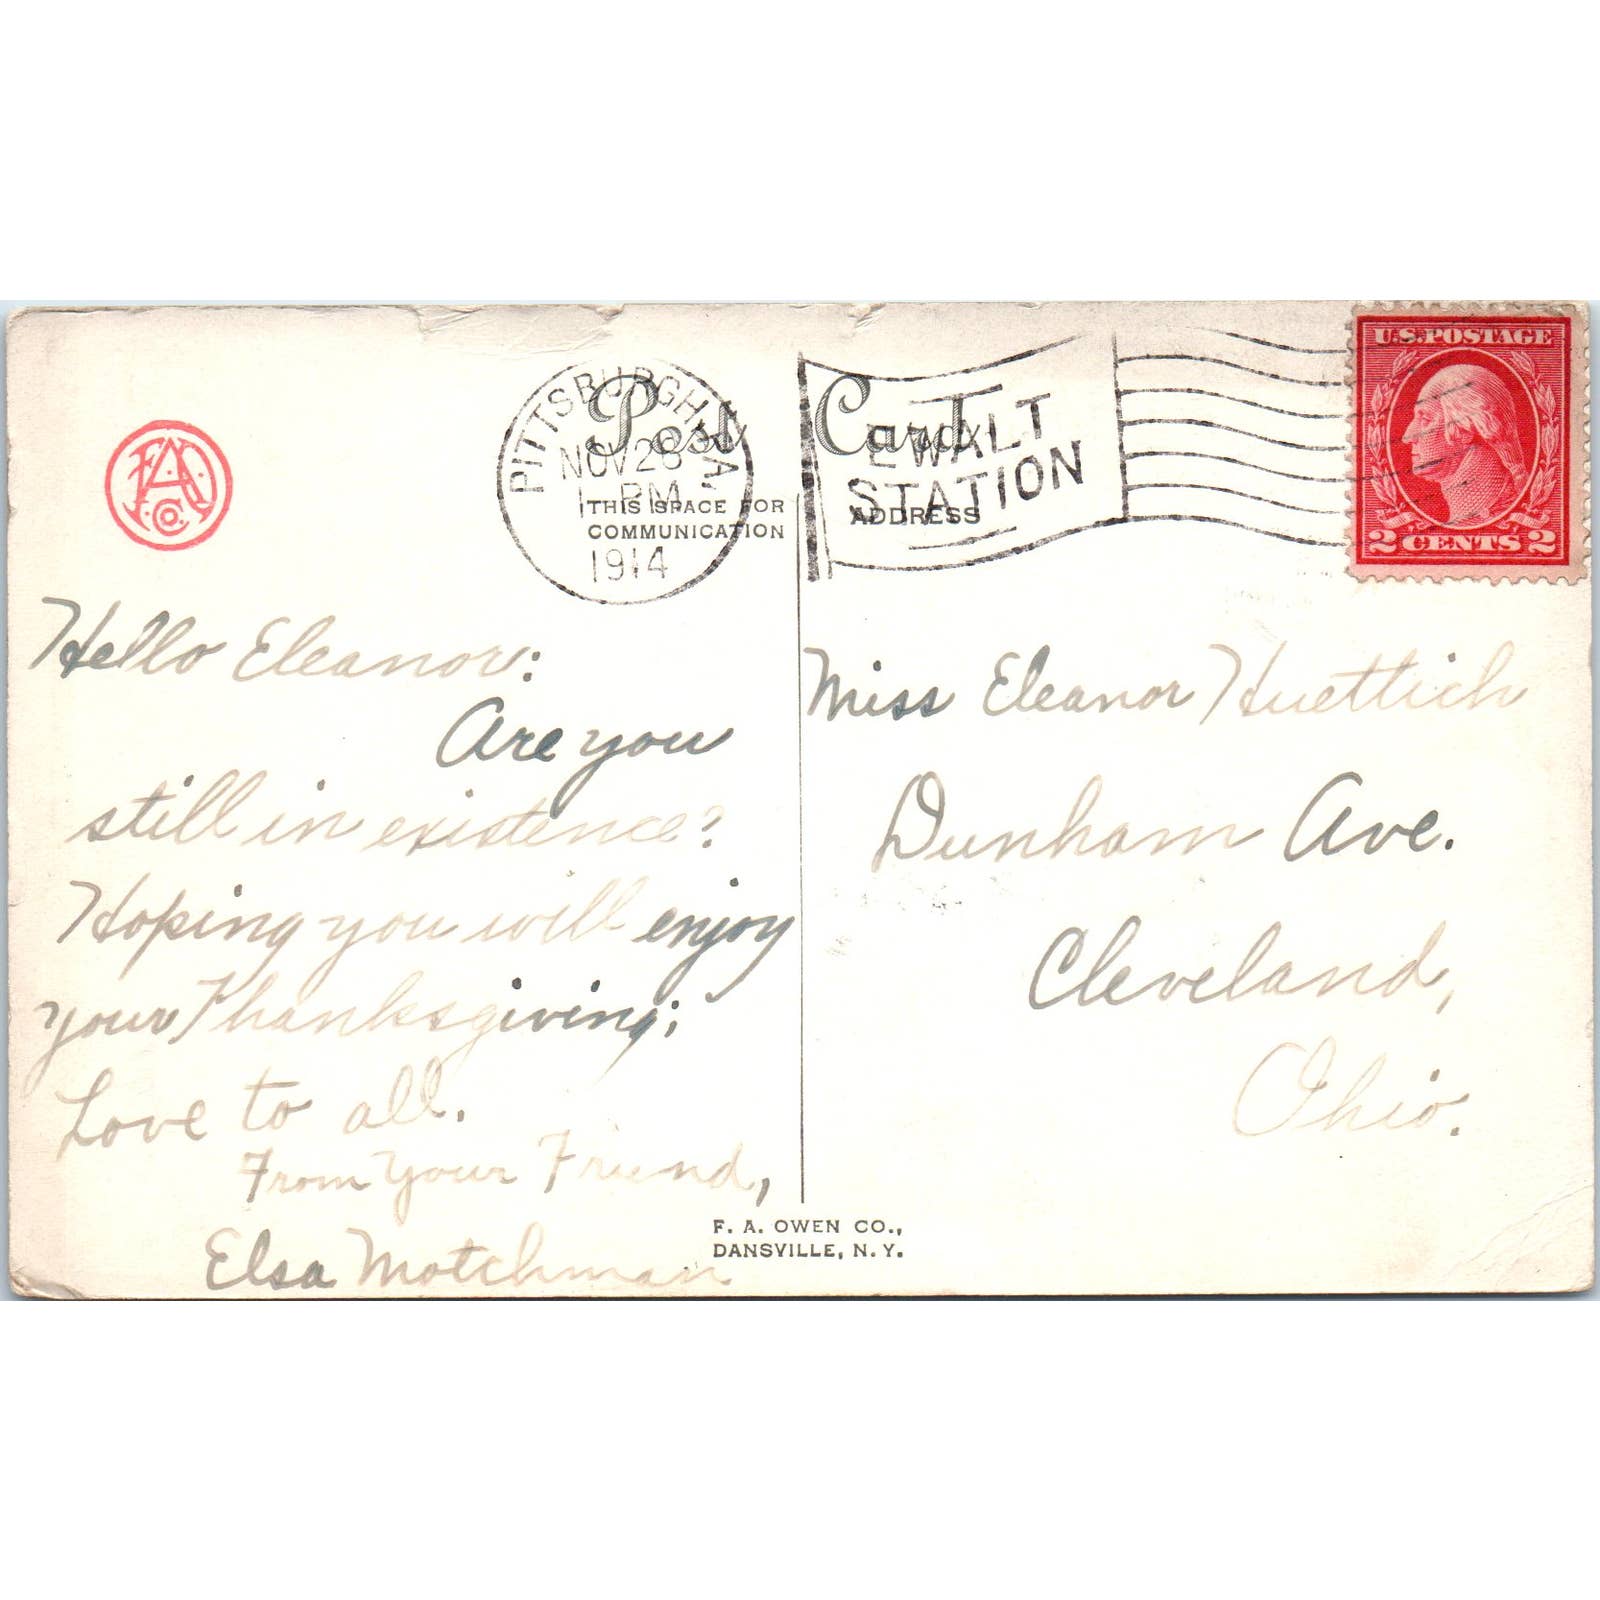 Post Card
THIS SPACE FOR
COMMUNICATION
ADDRESS
PITTSBURGH, PA.
NOV 26
1 PM
1914
EWALT
STATION
U.S. POSTAGE
2 CENTS 2
F A Co.
Hello Eleanor:
Are you
still in existence?
Hoping you will enjoy
your Thanksgiving;
Love to all.
From Your Friend,
Elsa Motchman
Miss Eleanor Huettich
Dunham Ave.
Cleveland,
Ohio.
F. A. OWEN CO.,
DANSVILLE, N. Y.